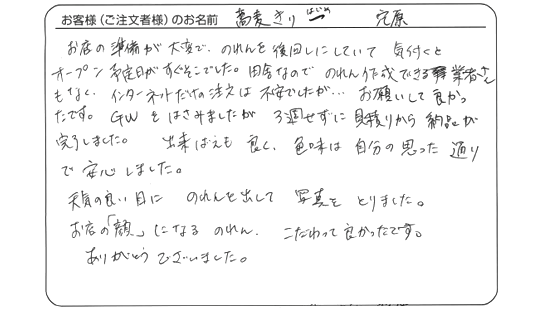 お客様（ご注文者様）のお名前 蕎麦きり 一 はじめ 宍原
お店の準備が大変で、のれんを後回しにしていて 気付くと
オープン予定日がすぐそこでした。田舎なので のれん作成できる業者さん
もなく、インターネットだけの注文は不安でしたが… お願いして良かっ
たです。GWをはさみましたが 3週せずに見積りから納品が
完了しました。 出来ばえも良く、色味は自分の思った通り
で安心しました。
天気の良い日に のれんを出して 写真を とりました。
お店の「顔」になる のれん、 こだわって良かったです。
ありがとうございました。